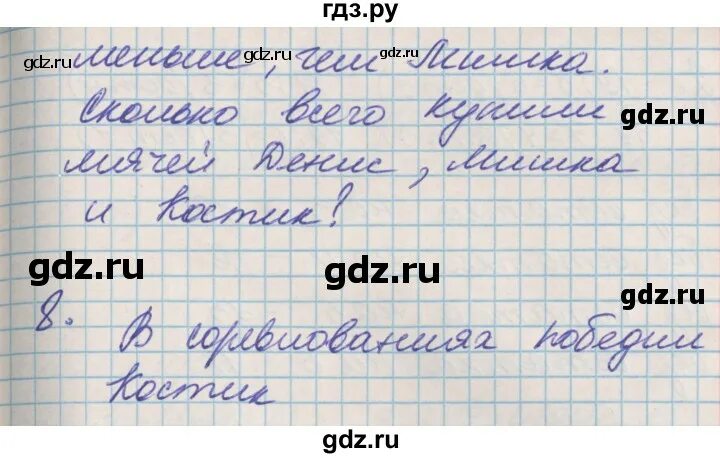 гдз.ру
меньше, чем Мишка.
gdz.ru gdz.ru gdz.ru
Сколько всего купили
gdz.ru
мячей Денис, Мишка
и Костик?
gdz.ru gdz.ru
8.
gdz.ru
В соревнованиях победил
gdz.ru gdz.ru
Костик
gdz.ru